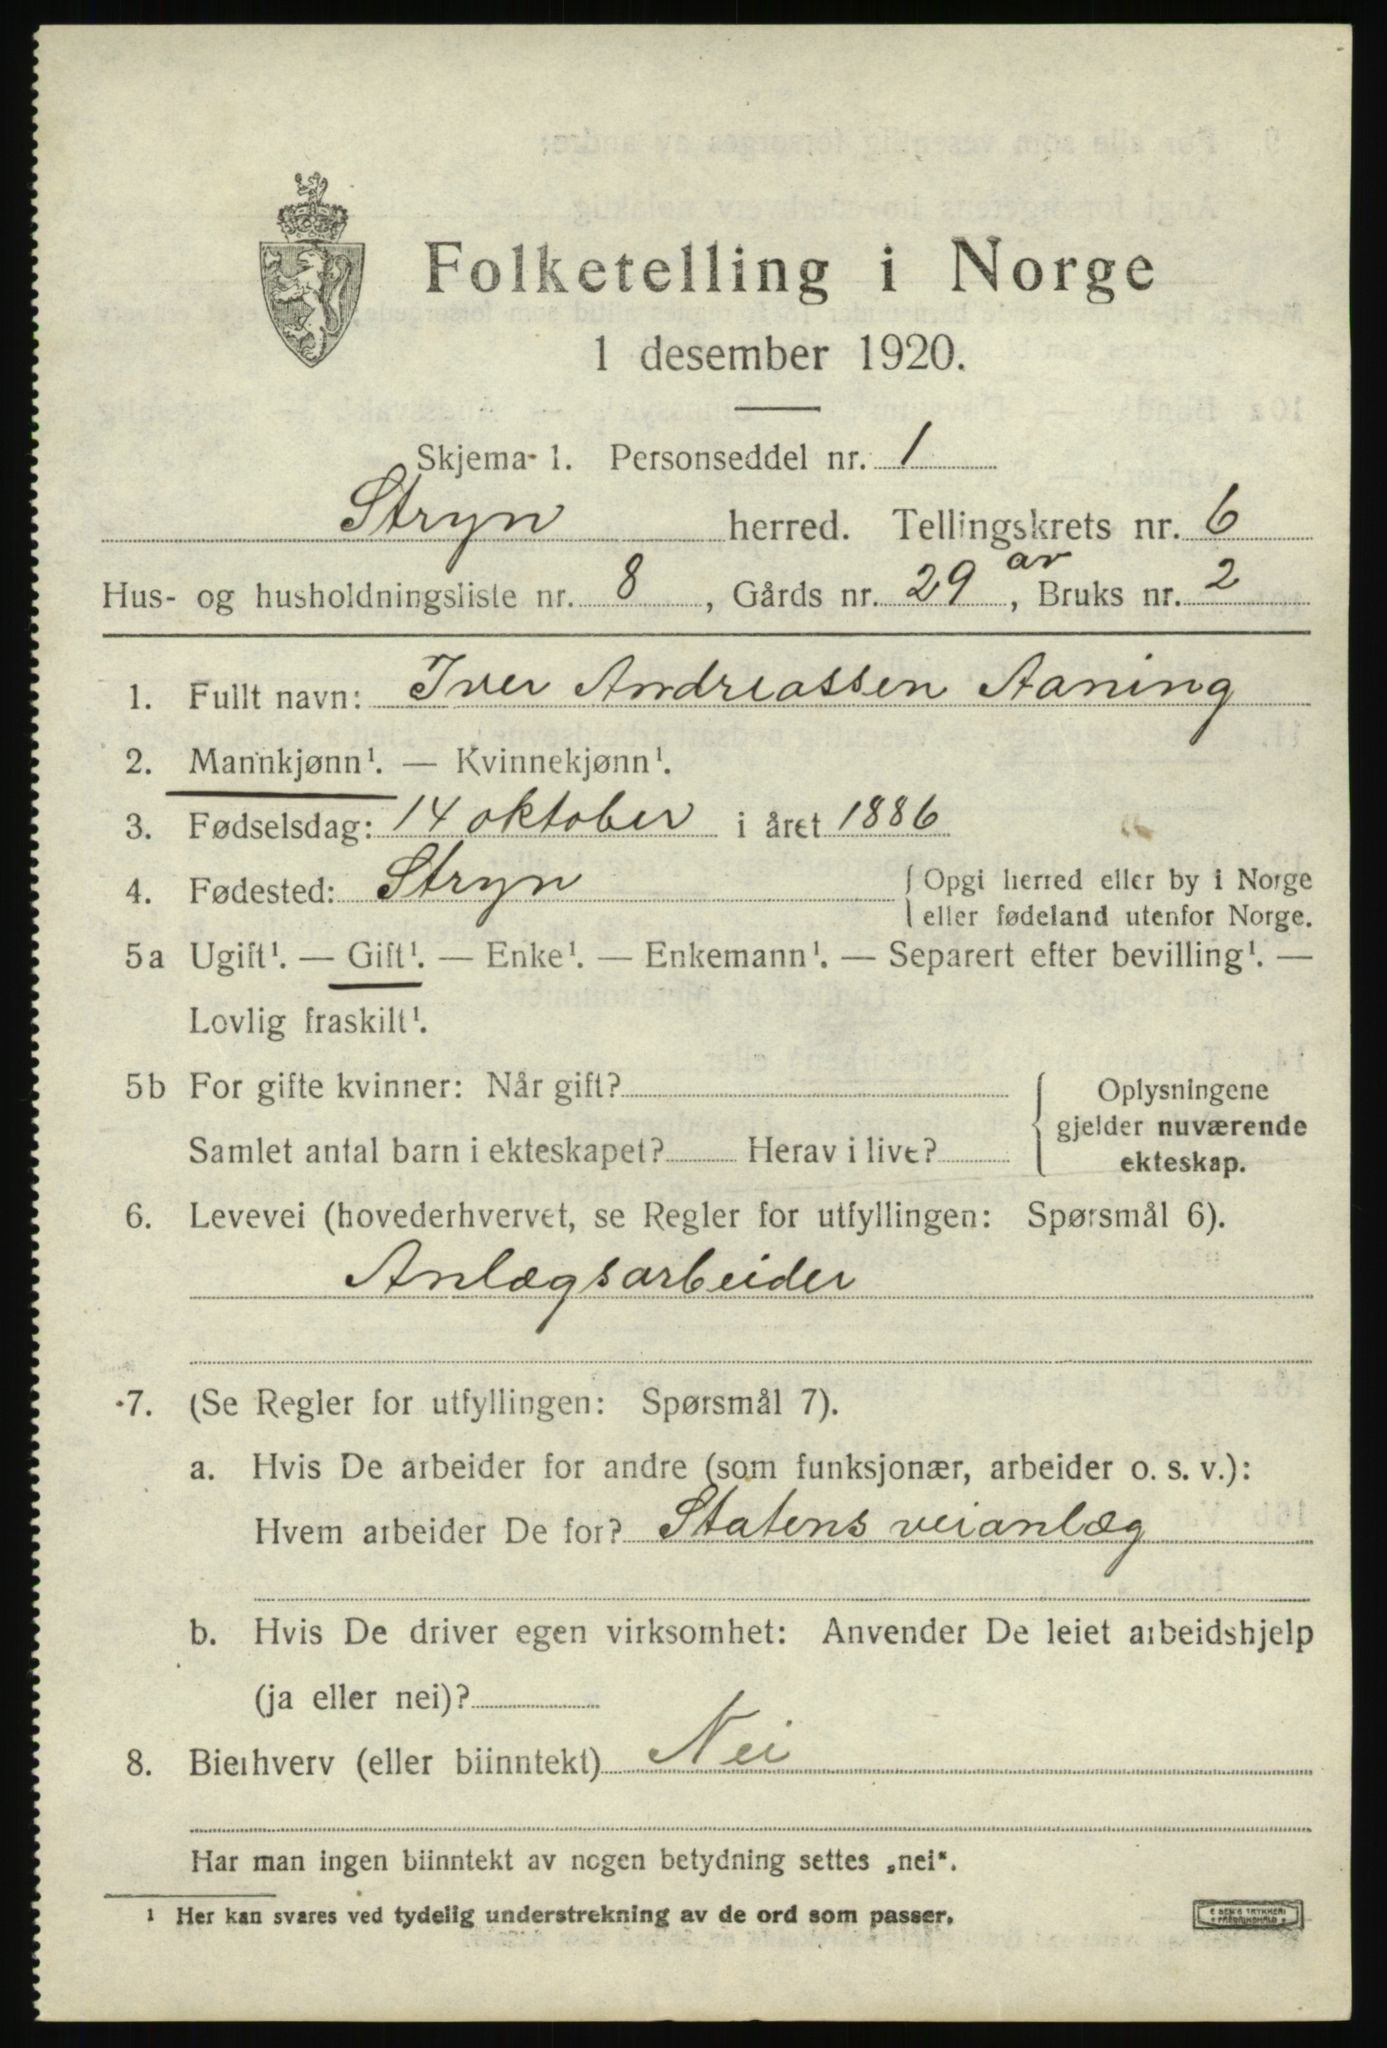 Folketelling i Norge
1 desember 1920.
Skjema 1. Personseddel nr. 1
Stryn herred. Tellingskrets nr. 6
Hus- og husholdningsliste nr. 8, Gårds nr. 29, av Bruks nr. 2
1. Fullt navn: Iver Andreassen Aaning
2. Mannkjønn¹. — Kvinnekjønn¹.
3. Fødselsdag: 14 oktober i året 1886
4. Fødested: Stryn {Opgi herred eller by i Norge
eller fødeland utenfor Norge.
5a Ugift¹. — Gift¹. — Enke¹. — Enkemann¹. — Separert efter bevilling¹. —
Lovlig fraskilt¹.
5b For gifte kvinner: Når gift? { Oplysningene
gjelder nuværende
Samlet antal barn i ekteskapet? Herav i live?
ekteskap.
6. Levevei (hovederhvervet, se Regler for utfyllingen: Spørsmål 6).
Anlægsarbeider
7. (Se Regler for utfyllingen: Spørsmål 7).
a. Hvis De arbeider for andre (som funksjonær, arbeider o. s. v.):
Hvem arbeider De for? Statens veianlæg
b. Hvis De driver egen virksomhet: Anvender De leiet arbeidshjelp
(ja eller nei)?
8. Bierhverv (eller biinntekt) Nei
Har man ingen biinntekt av nogen betydning settes „nei“.
¹ Her kan svares ved tydelig understrekning av de ord som passer.